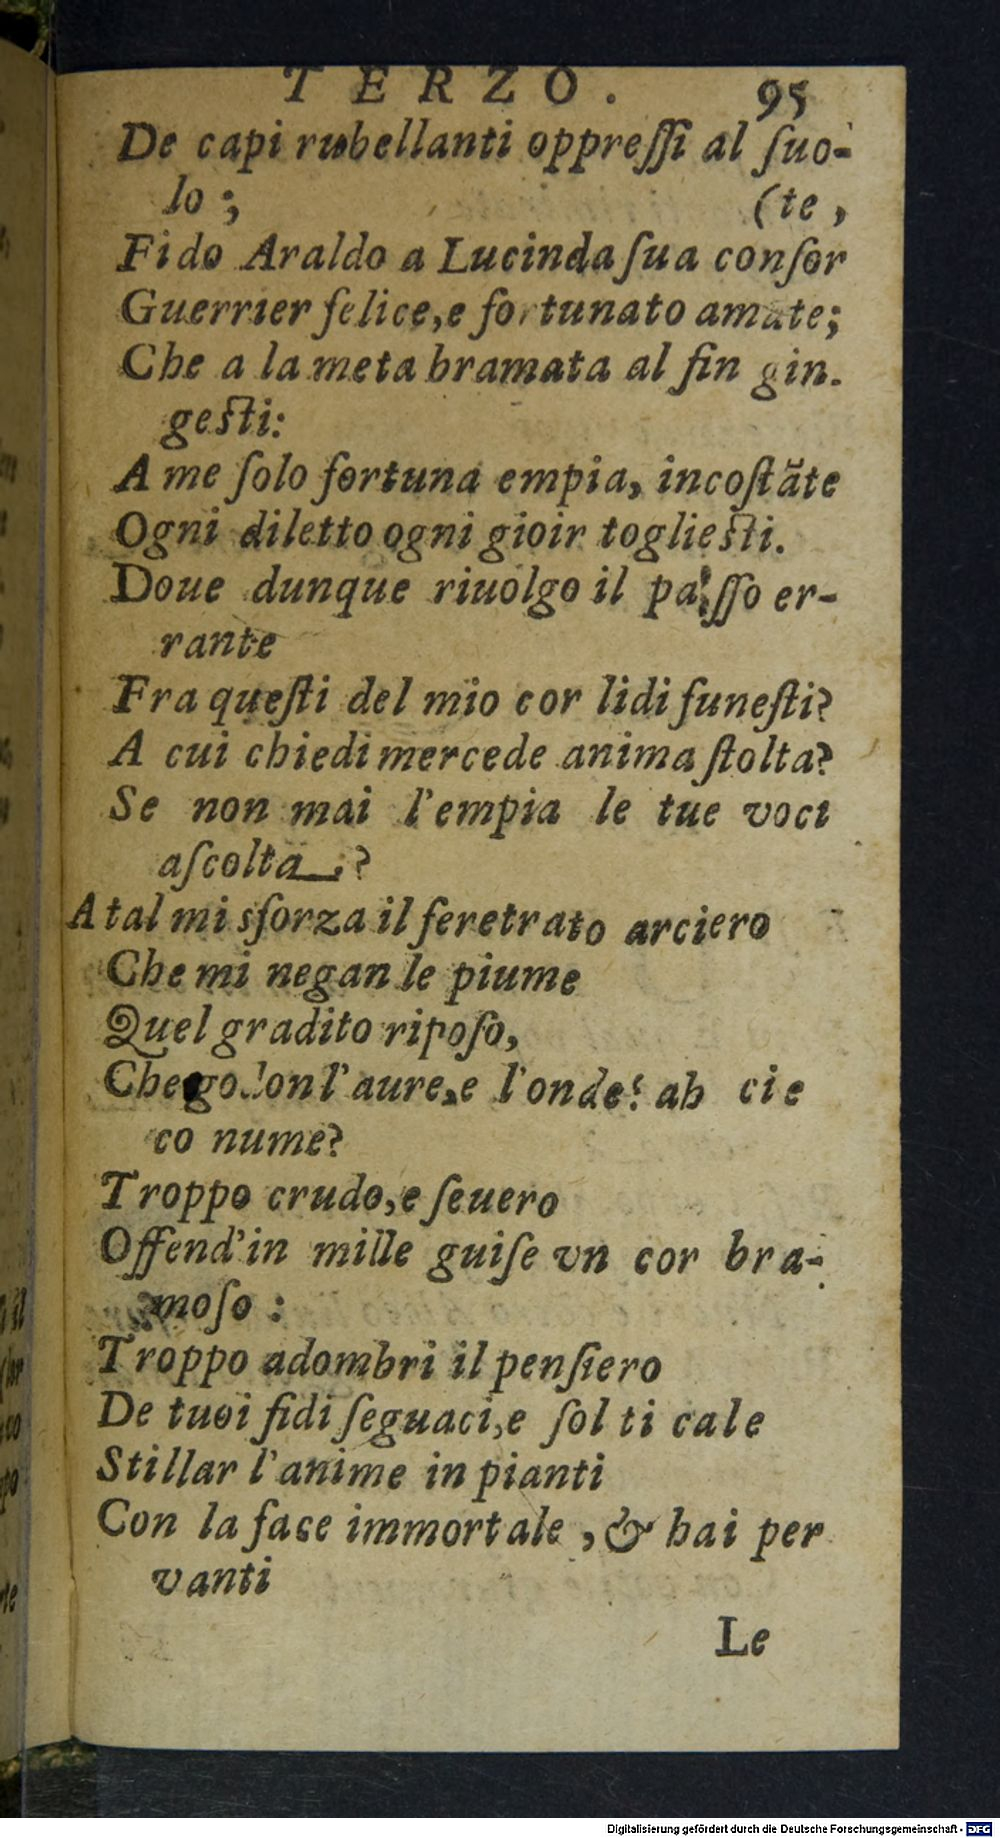 TERZO. 95
De capi rubellanti oppreſſi al ſuo-
lo ; (te,
Fido Araldo a Lucinda ſua conſor
Guerrier felice, e fortunato amate;
Che a la meta bramata al fin gin-
geſti:
A me ſolo fortuna empia, incoſtãte
Ogni diletto ogni gioir toglieſti.
Doue dunque riuolgo il paſſo er-
rante
Fra queſti del mio cor lidi funeſti?
A cui chiedi mercede anima ſtolta?
Se non mai l'empia le tue voci
aſcolta?
A tal mi sforza il feretrato arciero
Che mi negan le piume
Quel gradito ripoſo,
Che godon l'aure, e l'onde! ah cie
co nume?
Troppo crudo, e ſeuero
Offend' in mille guiſe vn cor bra-
moſo :
Troppo adombri il penſiero
De tuoi fidi ſeguaci, e ſol ti cale
Stillar l'anime in pianti
Con la face immortale , & hai per
vanti
Le
Digitalisierung gefördert durch die Deutsche Forschungsgemeinschaft - DFG